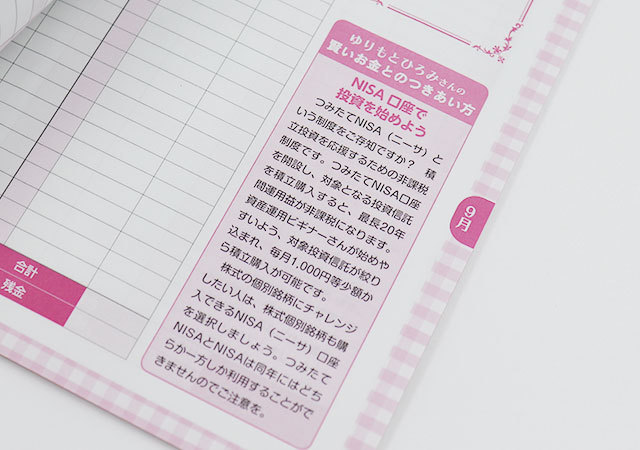 ゆりもとひろみさんの
賢いお金とのつきあい方
NISA口座で
投資を始めよう
つみたてNISA（ニーサ）と
いう制度をご存知ですか？ 積
立投資を応援するための非課税
制度です。つみたてNISA口座
を開設し、対象となる投資信託
を積立購入すると、最長20年
間運用益が非課税になります。
資産運用ビギナーさんが始めや
すいよう、対象投資信託が絞り
込まれ、毎月1,000円等少額か
ら積立購入が可能です。
株式の個別銘柄にチャレンジ
したい人は、株式個別銘柄も購
入できるNISA（ニーサ）口座
を選択しましょう。つみたて
NISAとNISAは同年にはどち
らか一方しか利用することがで
きませんのでご注意を。
9月
合計
残金